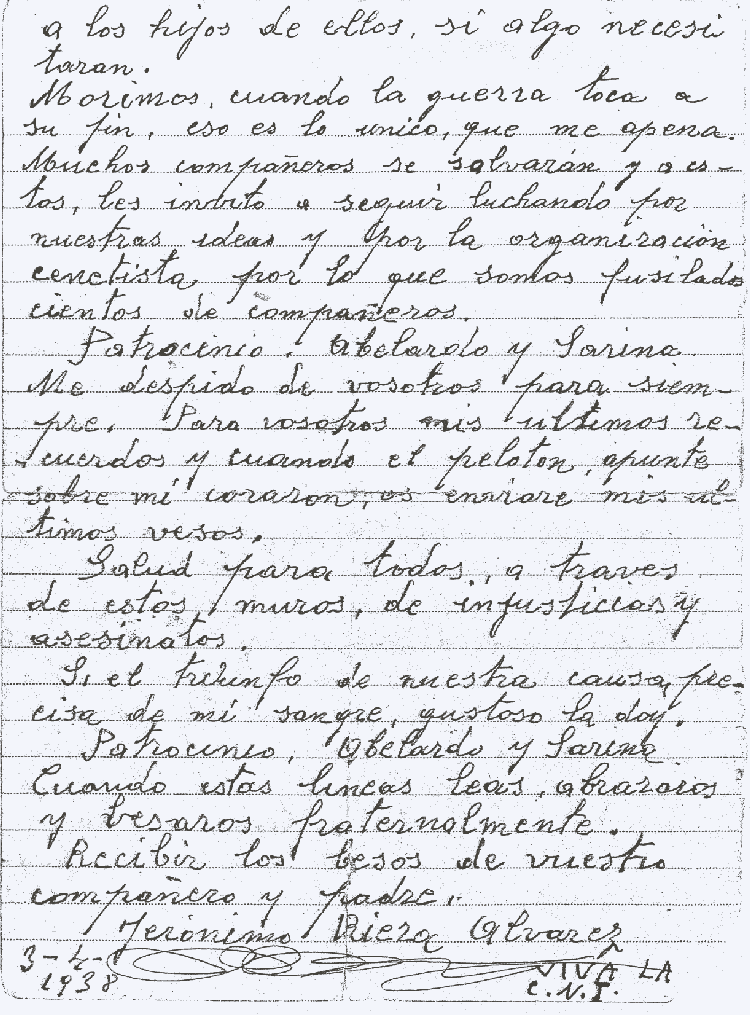 a los hijos de ellos, si algo necesi
taran.
Morimos, cuando la guerra toca a
su fin, eso es lo unico, que me apena.
Muchos compañeros se salvarán y a es-
tos, les invito a seguir luchando por
nuestras ideas y por la organización
cenetista por lo que somos fusilados
cientos de compañeros.
Patrocinio, Abelardo y Sarina
Me despido de vosotros para siem-
pre. Para vosotros mis ultimos re-
cuerdos y cuando el peloton, apunte
sobre mí corazon, os enviare mis ul-
timos vesos.
Salud para todos, a traves
de estos, muros, de injusticias y
asesinatos.
Si el triunfo de nuestra causa, pre-
cisa de mí sangre, gustoso la doy.
Patrocinio, Abelardo y Sarina
Cuando estas lineas leas, abrazaros
y besaros fraternalmente.
Recibir los besos de vuestro
compañero y padre.
Jerónimo Riera Alvarez
3-4-
1938
VIVA LA
C.N.T.